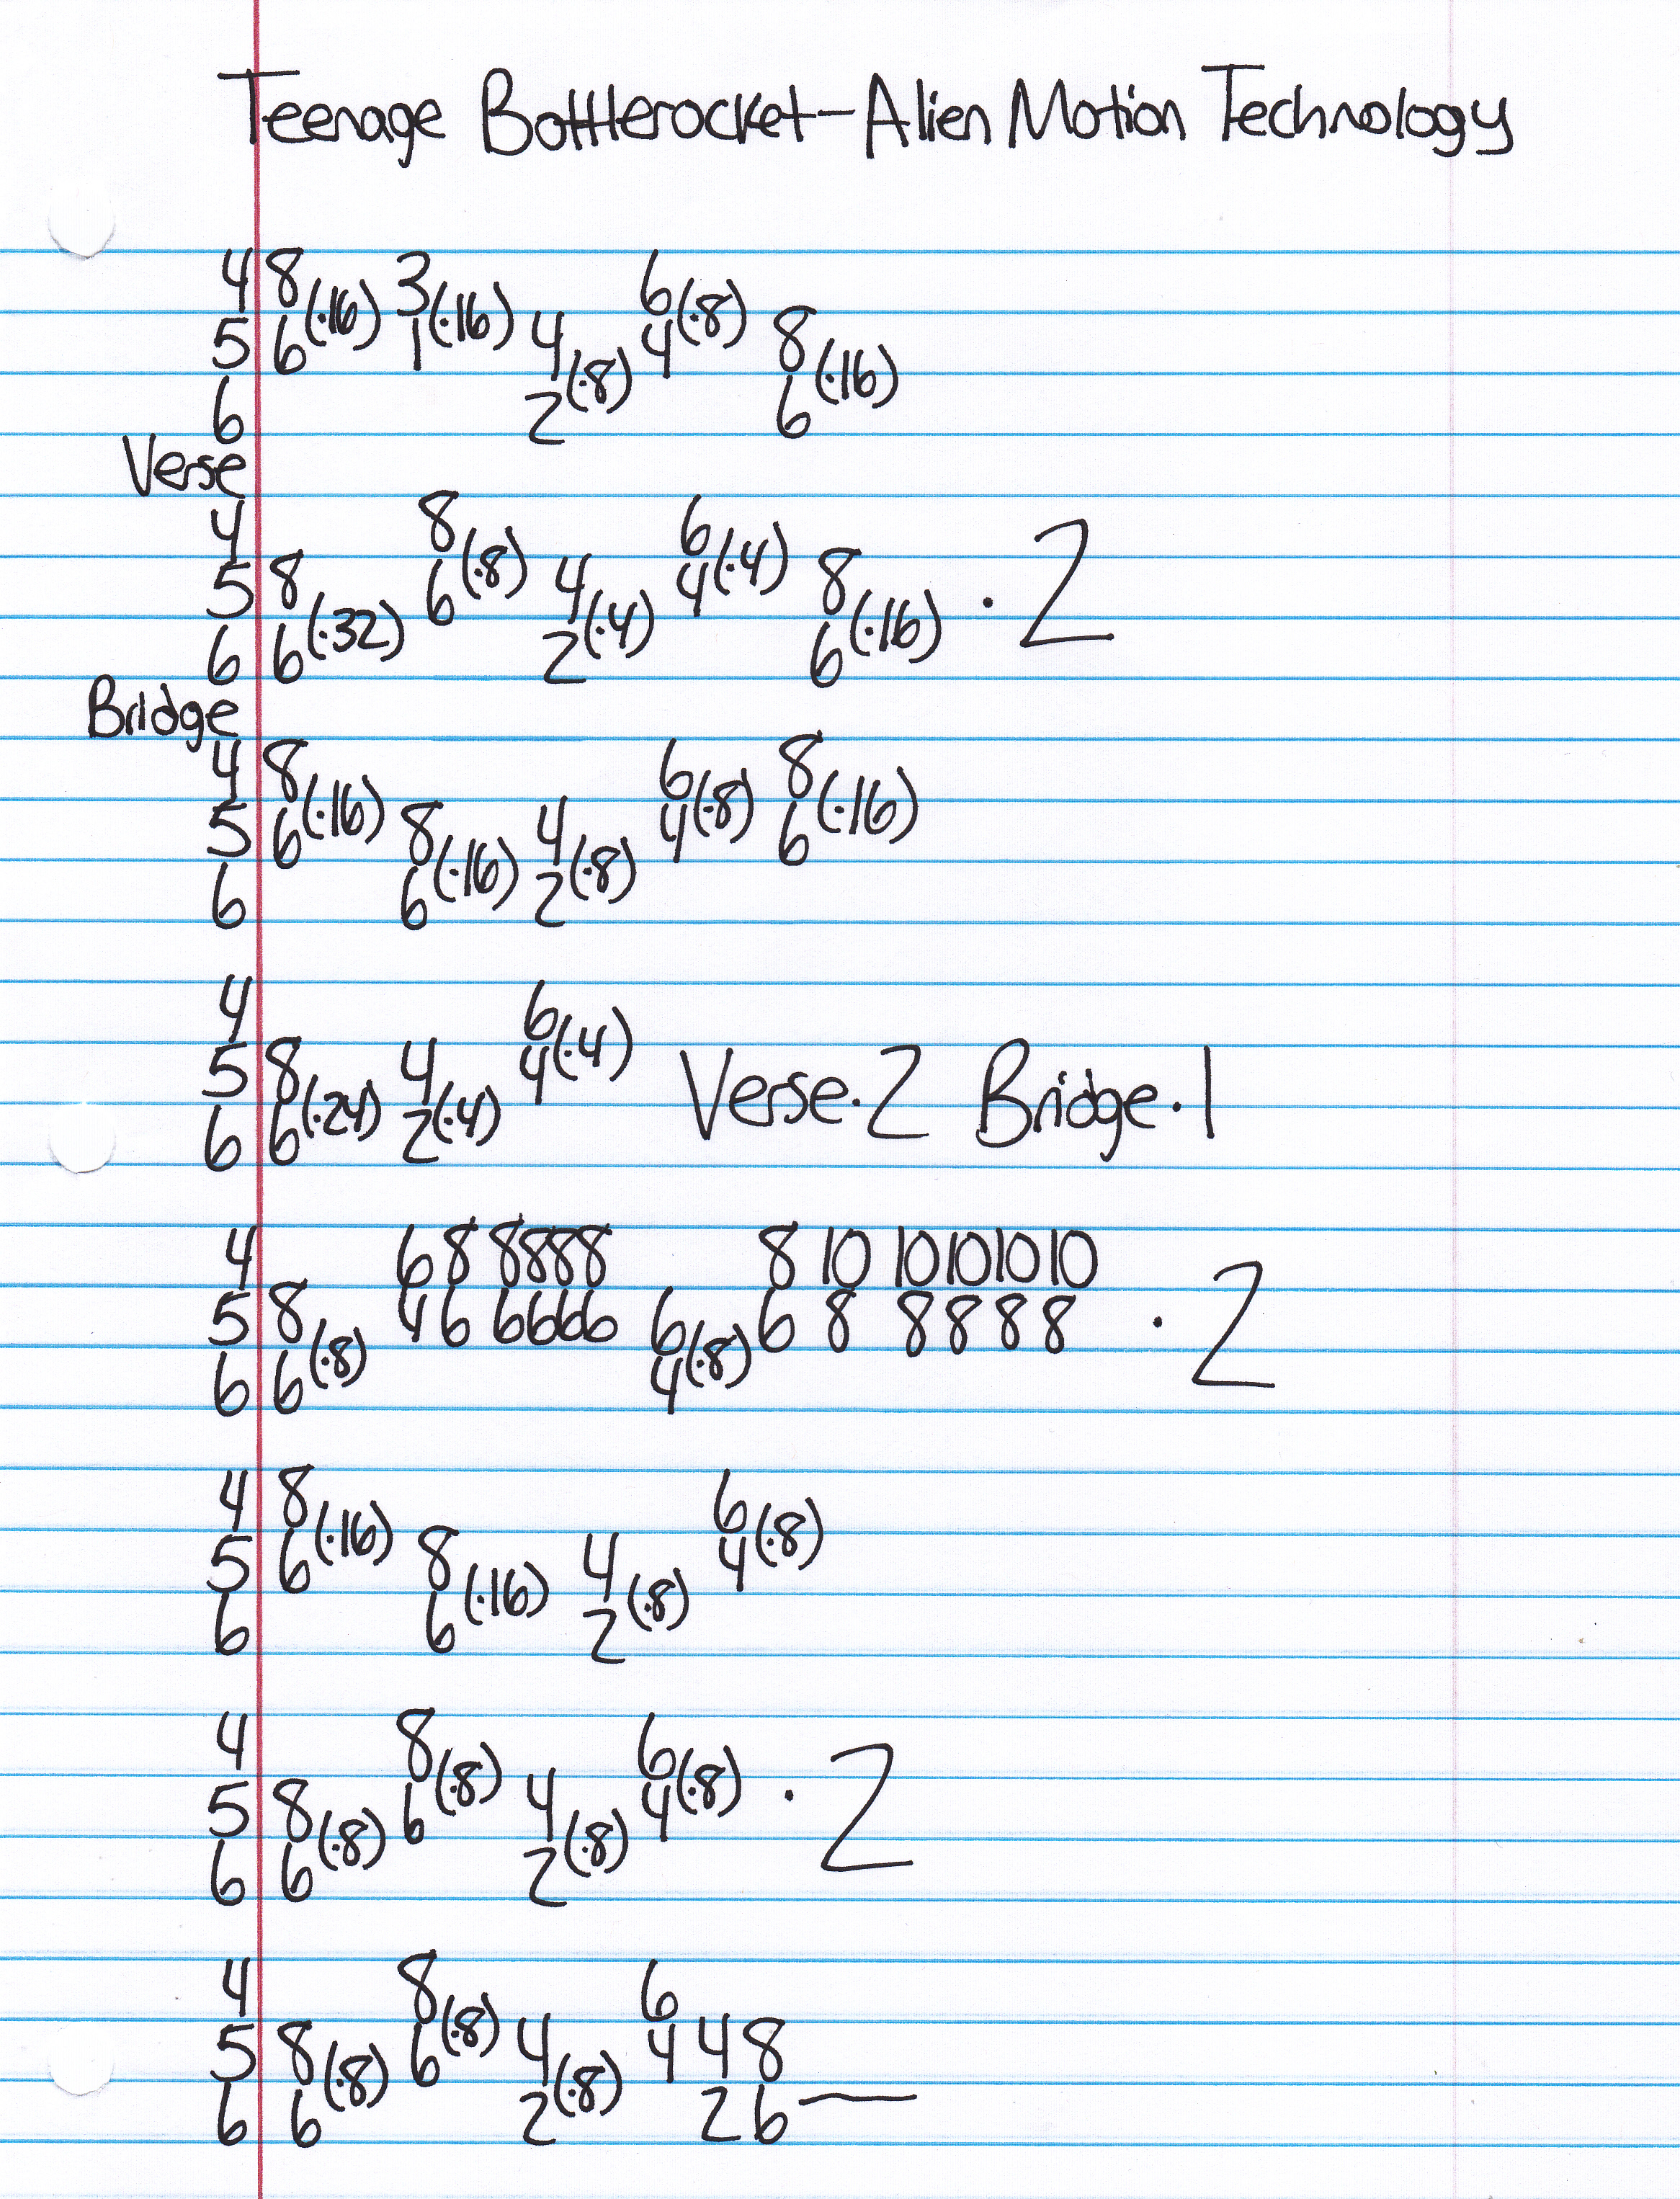 Teenage Bottlerocket-Alien Motion Technology
4 8 3 6
(·16) (·16) (·8)
5 6 1 4 4 8
(·8) (·16)
6 2 6
Verse
4 8 6
(·8) (·4)
5 8 6 4 4 8 · 2
(·32) (·4) (·16)
6 6 2 6
Bridge
4 8 6 8
(·16) (·8) (·16)
5 6 8 4 4 6
(·16) (·8)
6 6 2
4 6
(·4)
5 8 4 4 Verse·2 Bridge·1
(·24) (·4)
6 6 2
4 6 8 8888 8 10 10101010
5 8 4 6 6666 6 6 8 8888 · 2
(·8) (·8)
6 6 4
4 8 6
(·16) (·8)
5 6 8 4 4
(·16) (·8)
6 6 2
4 8 6
(·8) (·8)
5 8 6 4 4 · 2
(·8) (·8)
6 6 2
4 8 6
(·8)
5 8 6 4 4 4 8
(·8) (·8)
6 6 2 2 6—